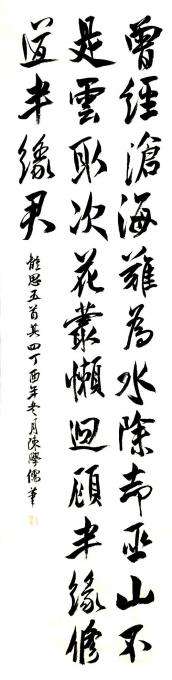 曾經滄海難為水除却巫山不
是雲取次花叢懶迴顧半緣修
道半緣君
離思五首其四丁酉年冬月陳學儒筆